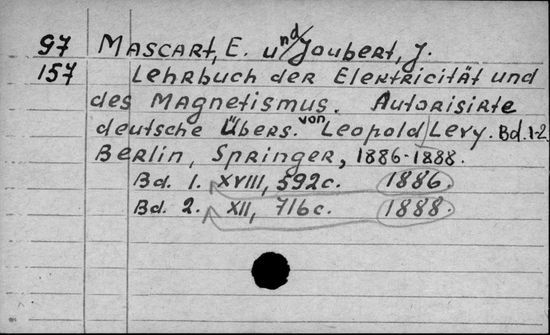 97 Mascart, E. und Joubert, J.
157 Lehrbuch der Elektricität und
des Magnetismus. Autorisirte
deutsche Übers. von Leopold Levy. Bd. 1-2
Berlin, Springer, 1886-1888.
Bd. 1. XVIII, 592c. 1886.
Bd. 2. XII, 716c. 1888.